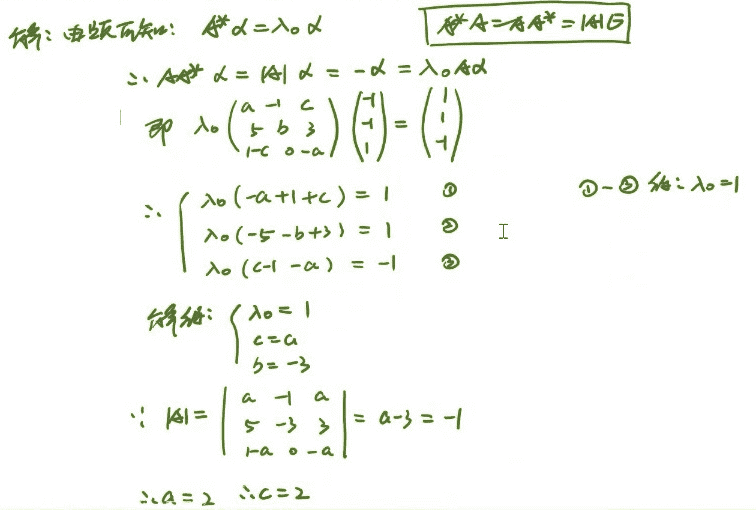 解：由题可知：A*α=λ₀α A*A=AA*=|A|E
∴ AA*α=|A|α=-α=λ₀Aα
即 λ₀(a -1 c; 5 b 3; 1-c 0 -a)(-1; -1; 1)=(1; 1; -1)
∴ { λ₀(-a+1+c)=1 ①
λ₀(-5-b+3)=1 ②
λ₀(c-1-a)=-1 ③
①-③得：λ₀=1
解得：{ λ₀=1
c=a
b=-3
∵ |A|=|a -1 a; 5 -3 3; 1-a 0 -a|=a-3=-1
∴a=2 ∴c=2